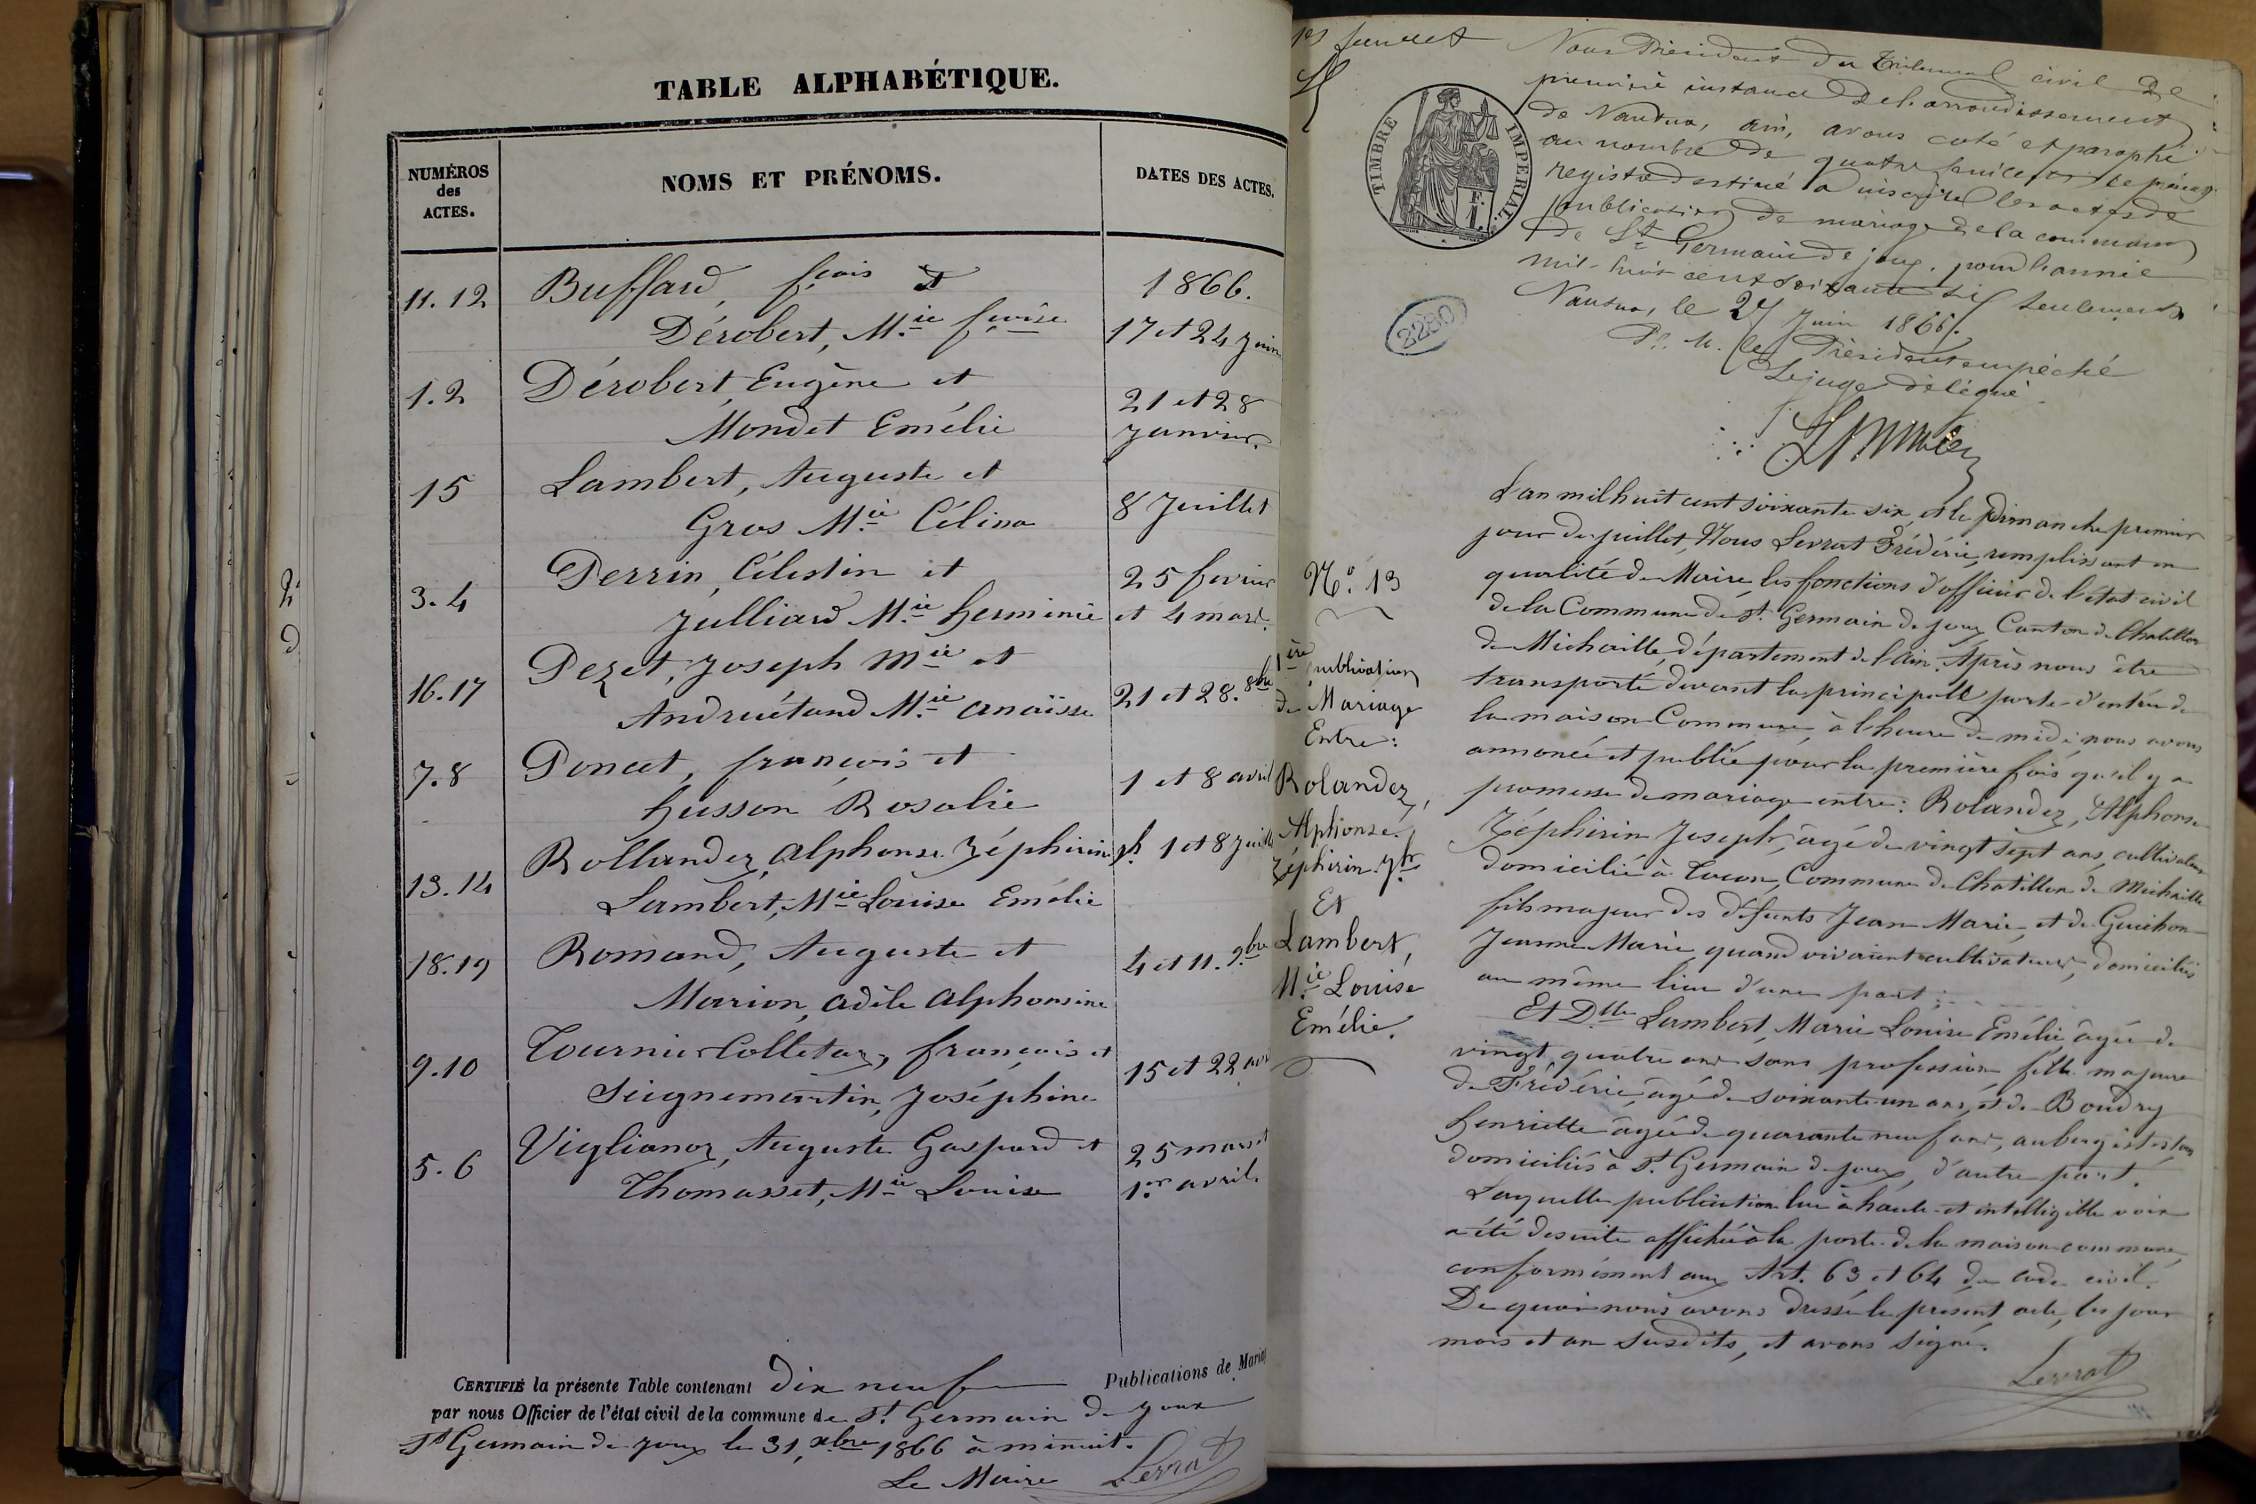 TABLE ALPHABÉTIQUE.
NUMÉROS
des
ACTES.
NOMS ET PRÉNOMS.
DATES DES ACTES.
11. 12
Buffard, fçois et
Dérobert, Mie fçoise
1866.
17 et 24 juin
1. 2
Dérobert, Eugène et
Mondet Emélie
21 et 28
janvier.
15
Lambert, Auguste et
Gros Mie Célina
8 Juillet
3. 4
Perrin, Célestin et
Julliard Mie herminie
25 fevrier
et 4 mars.
16. 17
Pezet, Joseph Mie et
Andruétand Mie anaïsse
21 et 28. 8bre
7. 8
Poncet, françois et
husson Rosalie
1 et 8 avril
13. 14
Rollandez, alphonse Zéphirin jh
Lambert, Mie Louise Emélie
1 et 8 Juillet
18. 19
Romand, Auguste et
Marion, adèle alphonsine
4 et 11. 9bre
9. 10
Tournier Colletaz, françois et
Seignemartin, Joséphine
15 et 22 avr
5. 6
Viglianoz, Auguste Gaspard et
Thomasset, Mie Louise
25 mars et
1er avril.
CERTIFIÉ la présente Table contenant dix neuf Publications de Mariag
par nous Officier de l'état civil de la commune de St Germain de Joux
St Germain de joux le 31, xbre 1866 à minuit.
Le Maire Levrat
1er feuillet
Nous Président du Tribunal civil de
première instance de l'arrondissement
de Nantua, ain, avons coté et paraphé
au nombre de quatre feuillets le présent
registre destiné à inscrire les actes de
publication de mariage de la commune
de St Germain de joux, pour l'année
mil-huit cent soixante six seulement
Nantua, le 27 Juin 1866.
Pr. M. le Président empêché
Le juge délégué
TIMBRE IMPÉRIAL.
F.
1.
3280
L'an mil huit cent soixante six, et le Dimanche premier
jour de juillet, Nous Levrat Frédéric, remplissant en
qualité de Maire les fonctions d'officier de l'état civil
de la Commune de St Germain de joux Canton de Chatillon
de Michaille, département de l'ain. Après nous être
transporté devant la principale porte d'entrée de
la maison Commune, à l'heure de midi nous avons
annoncé et publié pour la première fois qu'il y a
promesse de mariage entre: Rolandez, Alphonse
Zéphirin Joseph, âgé de vingt sept ans, cultivateur
domicilié à Tacon, Commune de Chatillon de Michaille
fils majeur des défunts Jean Marie, et de Guichon
Jeanne Marie, quand vivaient cultivateurs, domiciliés
au même lieu d'une part;
Et Dlle Lambert, Marie Louise Emélie, âgée de
vingt quatre ans sans profession fille majeure
de Frédéric, âgé de soixante un ans, et de Boudry
henriette âgée de quarante neuf ans, aubergistes, tous
domiciliés à St. Germain de joux, d'autre part.
Laquelle publication lue à haute et intelligible voix
a été desuite affichée à la porte de la maison commune,
conformément aux Art. 63 et 64 du code civil.
De quoi nous avons dressé le présent acte, les jour
mois et an susdits, et avons signé.
Levrat
No. 13
1ère publication
de Mariage
Entre:
Rolandez,
Alphonse
Zéphirin Jh
Et
Lambert,
Mie Louise
Emélie.